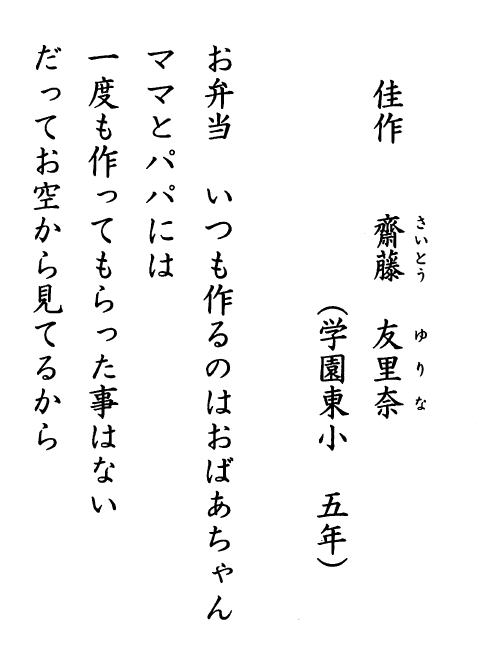 佳作　齋藤　友里奈
さいとう　ゆりな
（学園東小　五年）
お弁当　いつも作るのはおばあちゃん
ママとパパには
一度も作ってもらった事はない
だってお空から見てるから